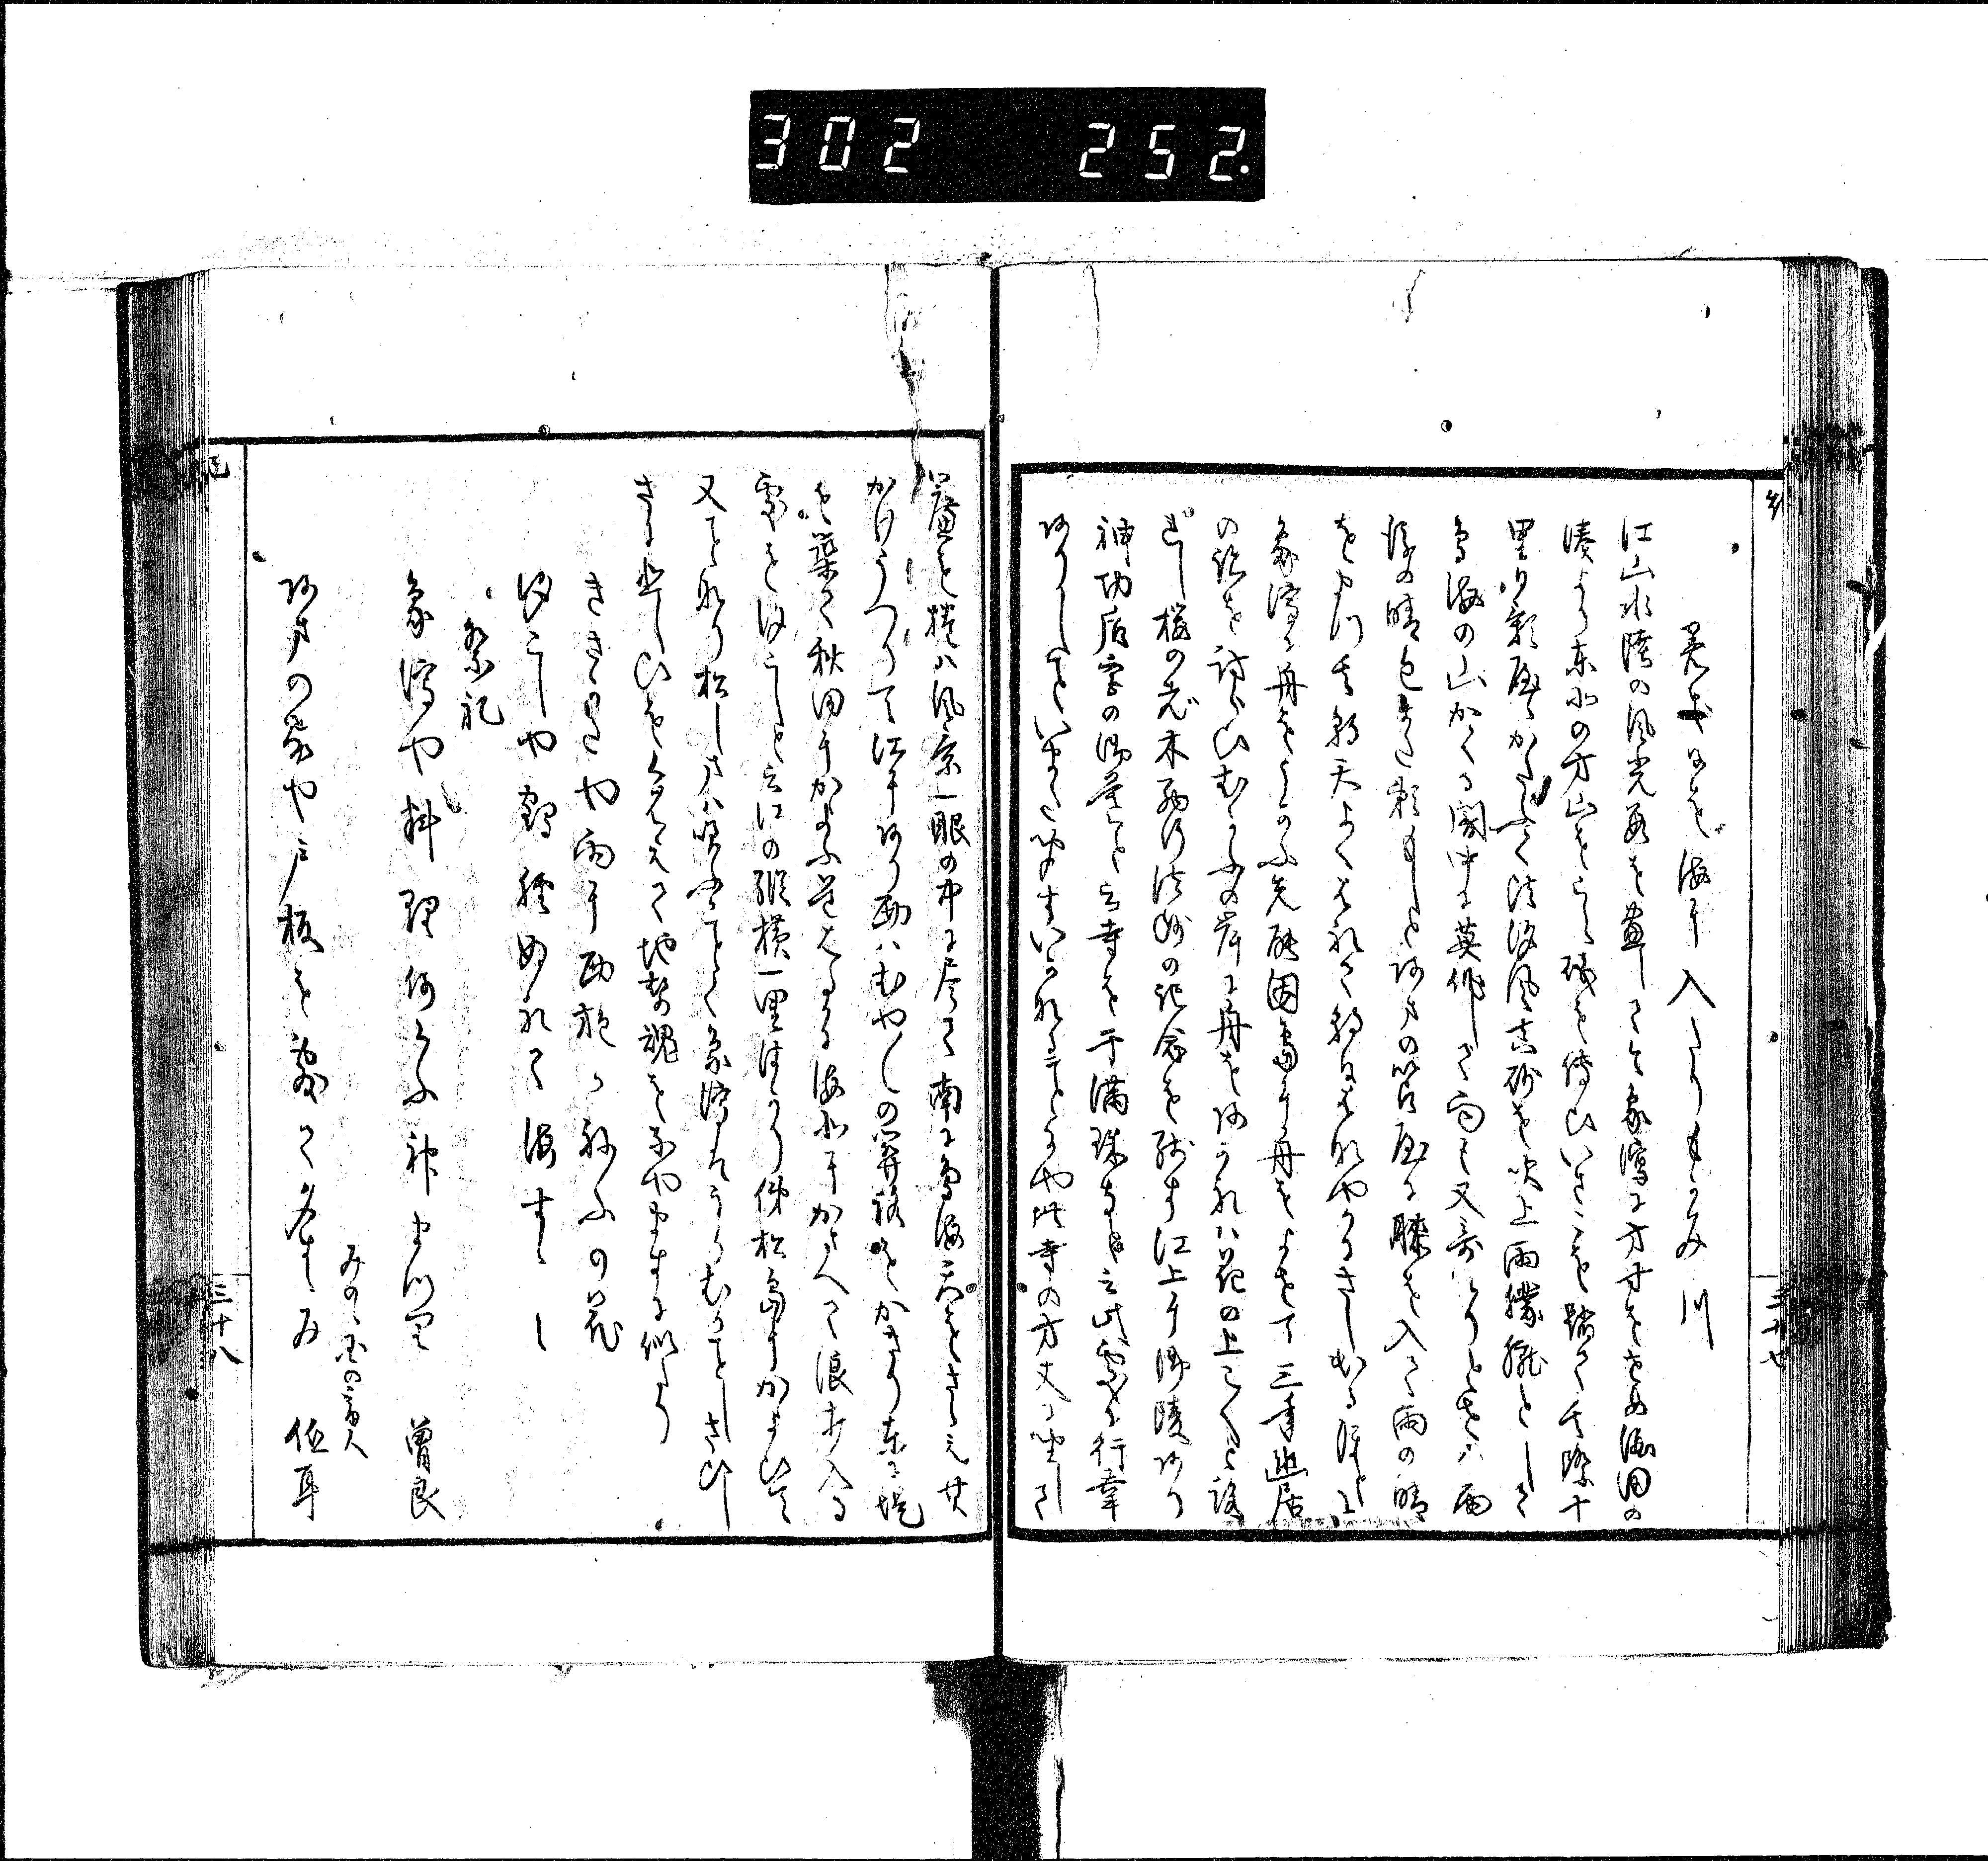 302 252.
暑き日を海に入れたりもかみ川
江山水陸の風光数を尽して今象潟に方寸をせむ酒田の
湊より東北の方山をこえ磯を伝ひいさこを踏て其際十
里日影やゝかたふく比汐風真砂を吹上雨朦朧として
鳥海の山かくる闇中に莫作して雨も又奇なりとせハ雨
後の晴色またたのもしと蜑の苫屋に膝を入て雨の晴
をまつ其朝天よく霽れて朝日花やかにさし出る程に
象潟に舟をうかふ先能因島に舟をよせて三年幽居
の跡を訪らひむかふの岸に舟をあかれハ花の上こくと詠
れし桜の老木西行法師の記念を残す江上に御陵あり
神功后宮の御墓と云寺を干満珠寺と云此處に行幸
ありしことハいまた聞すいかなることにや此寺の方丈に坐して
簾を捲ハ風景一眼の中に尽て南に鳥海天をさゝえ其
かけうつりて江にあり西ハむやむやの関路をかきり東に堤
を築て秋田にかよふ道はるかに海北にかまへて浪打入る
處を汐こしと云江の縦横一里はかり俤松島にかよひて
又ことなり松しまハ笑ふことく象潟はうらむかことしさひし
さに悲しひをくはえて地勢魂をなやますに似たり
きさかたや雨に西施かねふの花
汐こしや鶴脛ぬれて海すゝし
祭礼
象潟や料理何くふ神まつり 曽良
みのゝ国の商人
あまの家や戸板を敷て夕すゝみ 低耳
三十八